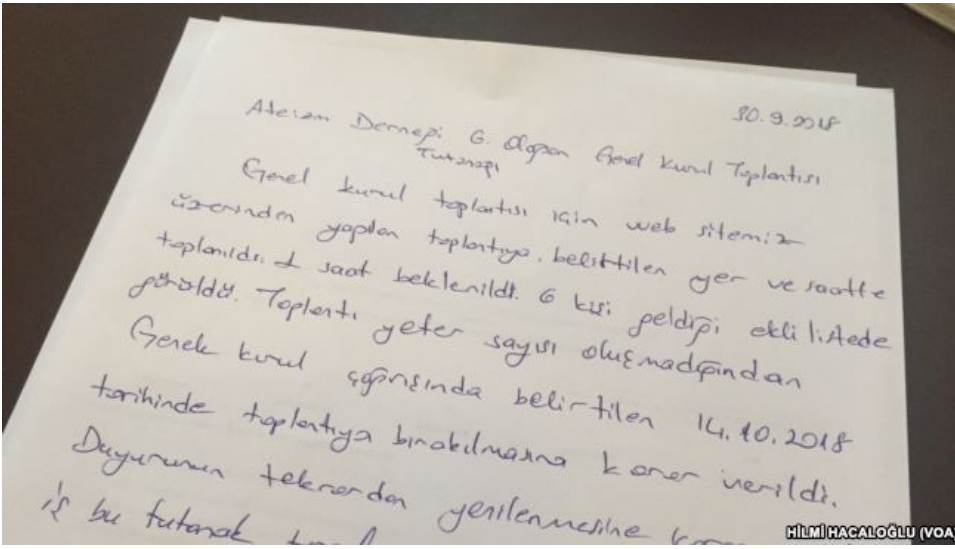 30.9.2018
Ateizm Derneği 6. Olağan Genel Kurul Toplantısı
Tutanağı
Genel kurul toplantısı için web sitemiz
üzerinden yapılan toplantıya, belirtilen yer ve saatte
toplanıldı. 1 saat beklenildi. 6 kişi geldiği ekli listede
görüldü. Toplantı yeter sayısı oluşmadığından
Genel kurul çağrısında belirtilen 14.10.2018
tarihinde toplantıya bırakılmasına karar verildi.
Duyurunun tekrardan yenilenmesine
iş bu tutanak
HİLMİ HACALOĞLU (VOA)